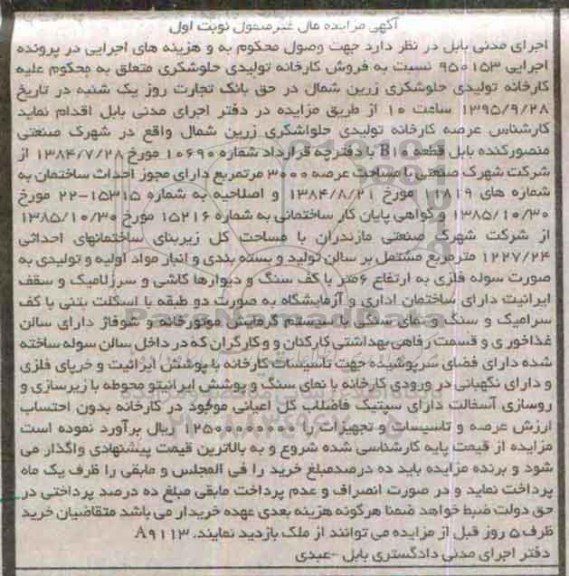 آگهی مزایده مال غیرمنقول نوبت اول
اجرای مدنی بابل در نظر دارد جهت وصول محکوم به و هزینه های اجرایی در پرونده
اجرایی ۹۵۰۱۵۳ نسبت به فروش کارخانه تولیدی حلوشکری متعلق به محکوم علیه
کارخانه تولیدی حلوشکری زرین شمال در حق بانک تجارت روز یک شنبه در تاریخ
۱۳۹۵/۹/۲۸ ساعت ۱۰ از طریق مزایده در دفتر اجرای مدنی بابل اقدام نماید
کارشناس عرصه کارخانه تولیدی حلواشکری زرین شمال واقع در شهرک صنعتی
منصورکنده بابل قطعه B۱۰ با دفترچه قرارداد شماره ۱۰۶۹۰ مورخ ۱۳۸۴/۷/۲۸ از
شرکت شهرک صنعتی با مساحت عرصه ۳۰۰۰ مترمربع دارای مجوز احداث ساختمان به
شماره های ۱۲۸۱۹ مورخ ۱۳۸۴/۸/۲۱ و اصلاحیه به شماره ۱۵۳۱۵-۲۲ مورخ
۱۳۸۵/۱۰/۳۰ و گواهی پایان کار ساختمانی به شماره ۱۵۲۱۶ مورخ ۱۳۸۵/۱۰/۳۰
از شرکت شهرک صنعتی مازندران با مساحت کل زیربنای ساختمانهای احداثی
۱۲۲۷/۲۴ مترمربع مشتمل بر سالن تولید و بسته بندی و انبار مواد اولیه و تولیدی به
صورت سوله فلزی به ارتفاع ۶متر با کف سنگ و دیوارها کاشی و سرامیک و سقف
ایرانیت دارای ساختمان اداری و آزمایشگاه به صورت دو طبقه با اسکلت بتنی با کف
سرامیک و سنگ و نمای سنگی با سیستم گرمایش موتورخانه و شوفاژ دارای سالن
غذاخوری و قسمت رفاهی بهداشتی کارکنان و کارگران که در داخل سالن سوله ساخته
شده دارای فضای سرپوشیده جهت تاسیسات کارخانه با پوشش ایرانیت و خرپای فلزی
و دارای نگهبانی در ورودی کارخانه با نمای سنگ و پوشش ایرانیتو محوطه با زیرسازی و
روسازی آسفالت دارای سپتیک فاضلاب کل اعیانی موجود در کارخانه بدون احتساب
ارزش عرصه و تاسیسات و تجهیزات ریال برآورد نموده است
مزایده از قیمت پایه کارشناسی شده شروع و به بالاترین قیمت پیشنهادی واگذار می
شود و برنده مزایده باید ده درصدمبلغ خرید را فی المجلس و مابقی را ظرف یک ماه
پرداخت نماید و در صورت انصراف و عدم پرداخت مابقی مبلغ ده درصد پرداختی در
حق دولت ضبط خواهد ضمنا هرگونه هزینه بعدی عهده خریدار می باشد متقاضیان خرید
ظرف ۵ روز قبل از مزایده می توانند از ملک بازدید نمایند. A۹۱۱۳
دفتر اجرای مدنی دادگستری بابل -عبدی
ParsNamadData